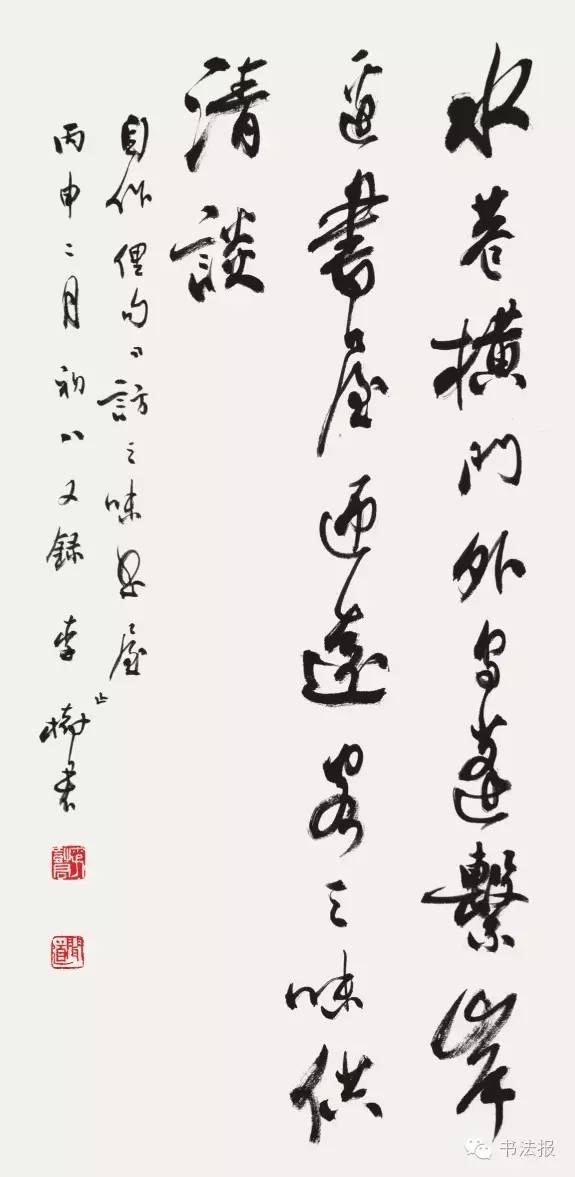 水巷橫門外烏蓬繫岸
邊書屋迎遠客三味供
清談
自作俚句訪三味書屋
丙申二月初八又錄 李
聞道
书法报